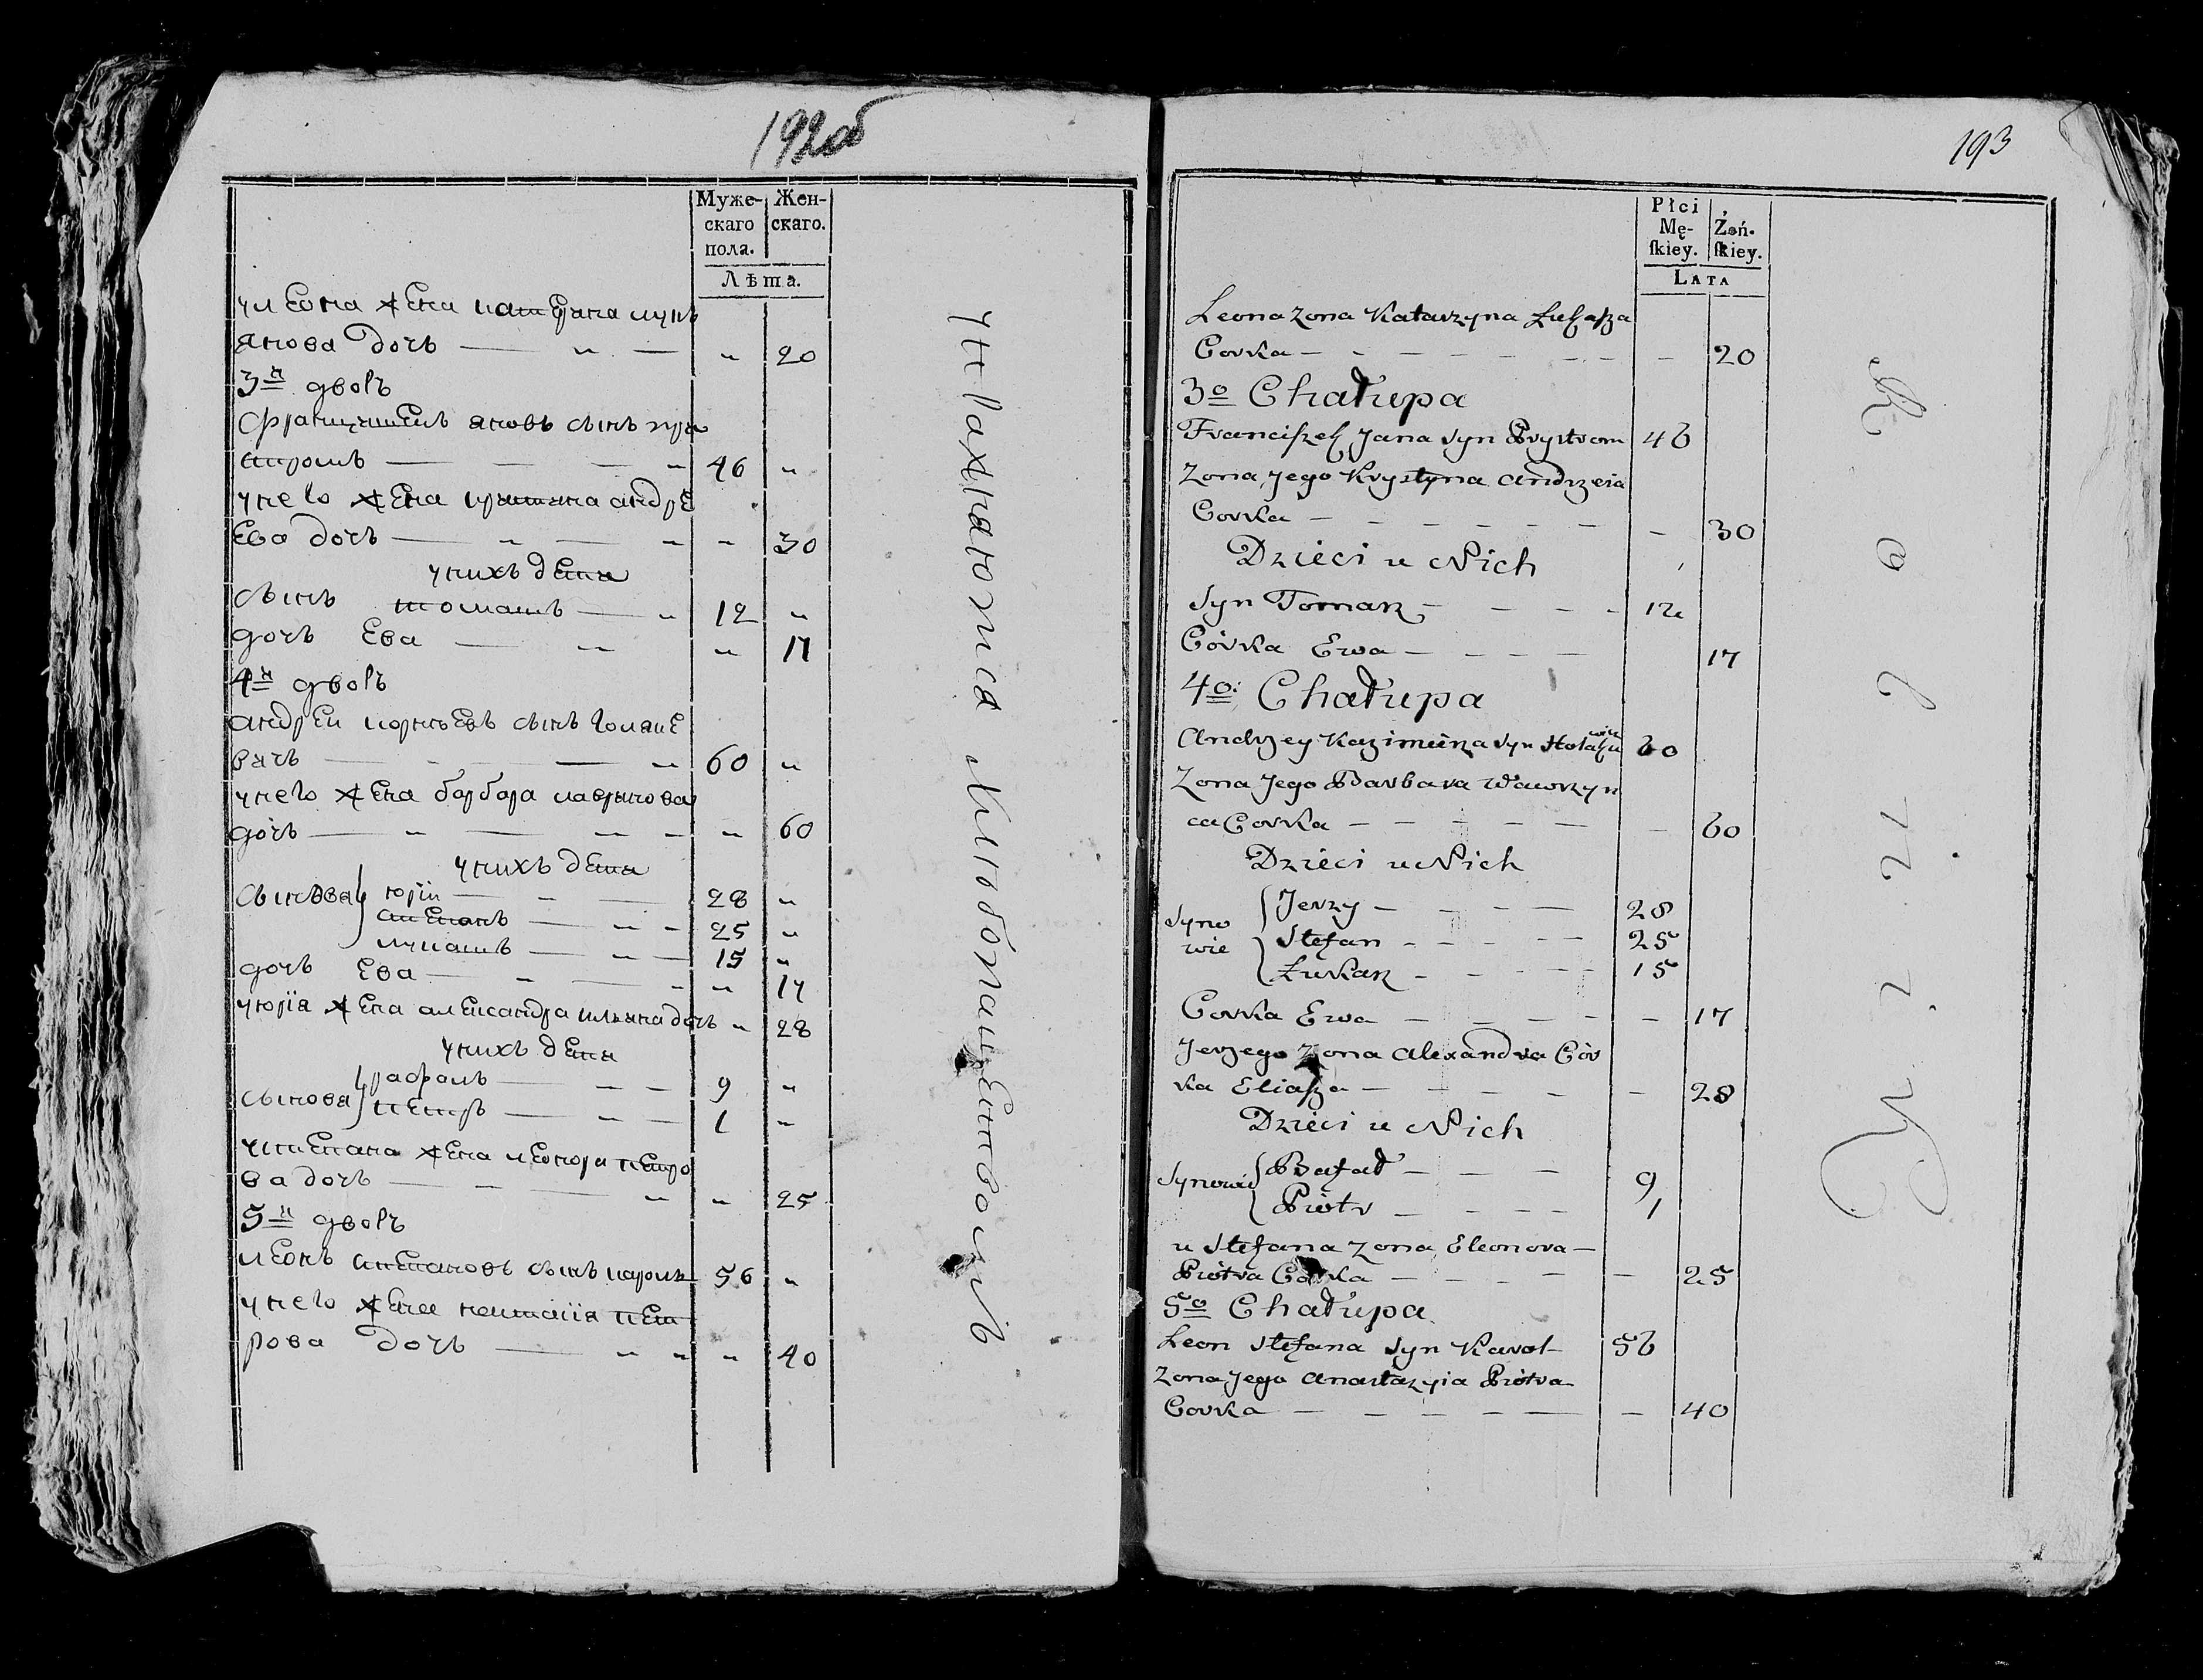 192об
Муже-
скаго
пола.
Жен-
скаго.
Лѣта.
улеона жена катерина лука
янова дочь 20
3й дворъ
францишекъ яновъ сынъ при
стромъ 46
унего жена криштина андре
ева дочь 30
унихъ дети
сынъ томашъ 12
дочь ева 17
4й дворъ
андреи
вичъ 60
унего жена барбара лаврынова
дочь 60
унихъ дети
сынова юрiи 28
степанъ 25
лукашъ 15
дочь ева 17
уюрiя жена александра дочь 28
унихъ дети
сынова рафалъ 9
петръ 1
устепана жена леонора петро
ва дочь 25
5й дворъ
леонъ степановъ сынъ кароль 56
унего жена настасiя пет
рова дочь 40
193
Płci
Mę-
ſkiey.
Żeń-
ſkiey.
LATA
Leona Zona Katarzyna Łukasza
Corka 20
3o Chałupa
Franciszek Jana Syn Prystrom 46
Zona Jego Krystyna Andrzeia
Corka 30
Dzieci u Nich
Syn Tomasz 12
Córka Ewa 17
4o: Chałupa
Andrzey Kazimierza Syn 60
Zona Jego Barbara Wawrzyn
ca Corka 60
Dzieci u Nich
Syno
wie
Jerzy 28
Stefan 25
Łukasz 15
Corka Ewa 17
Jerzego Zona Alexandra Cór
ka Eliasza 28
Dzieci u Nich
Synowie Rafał 9
Piotr 1
u Stefana Zona Eleonora
Piotra Corka 25
5o Chałupa
Leon Stefana Syn Karol 56
Zona Jego Anastazyia Piotra
Corka 40